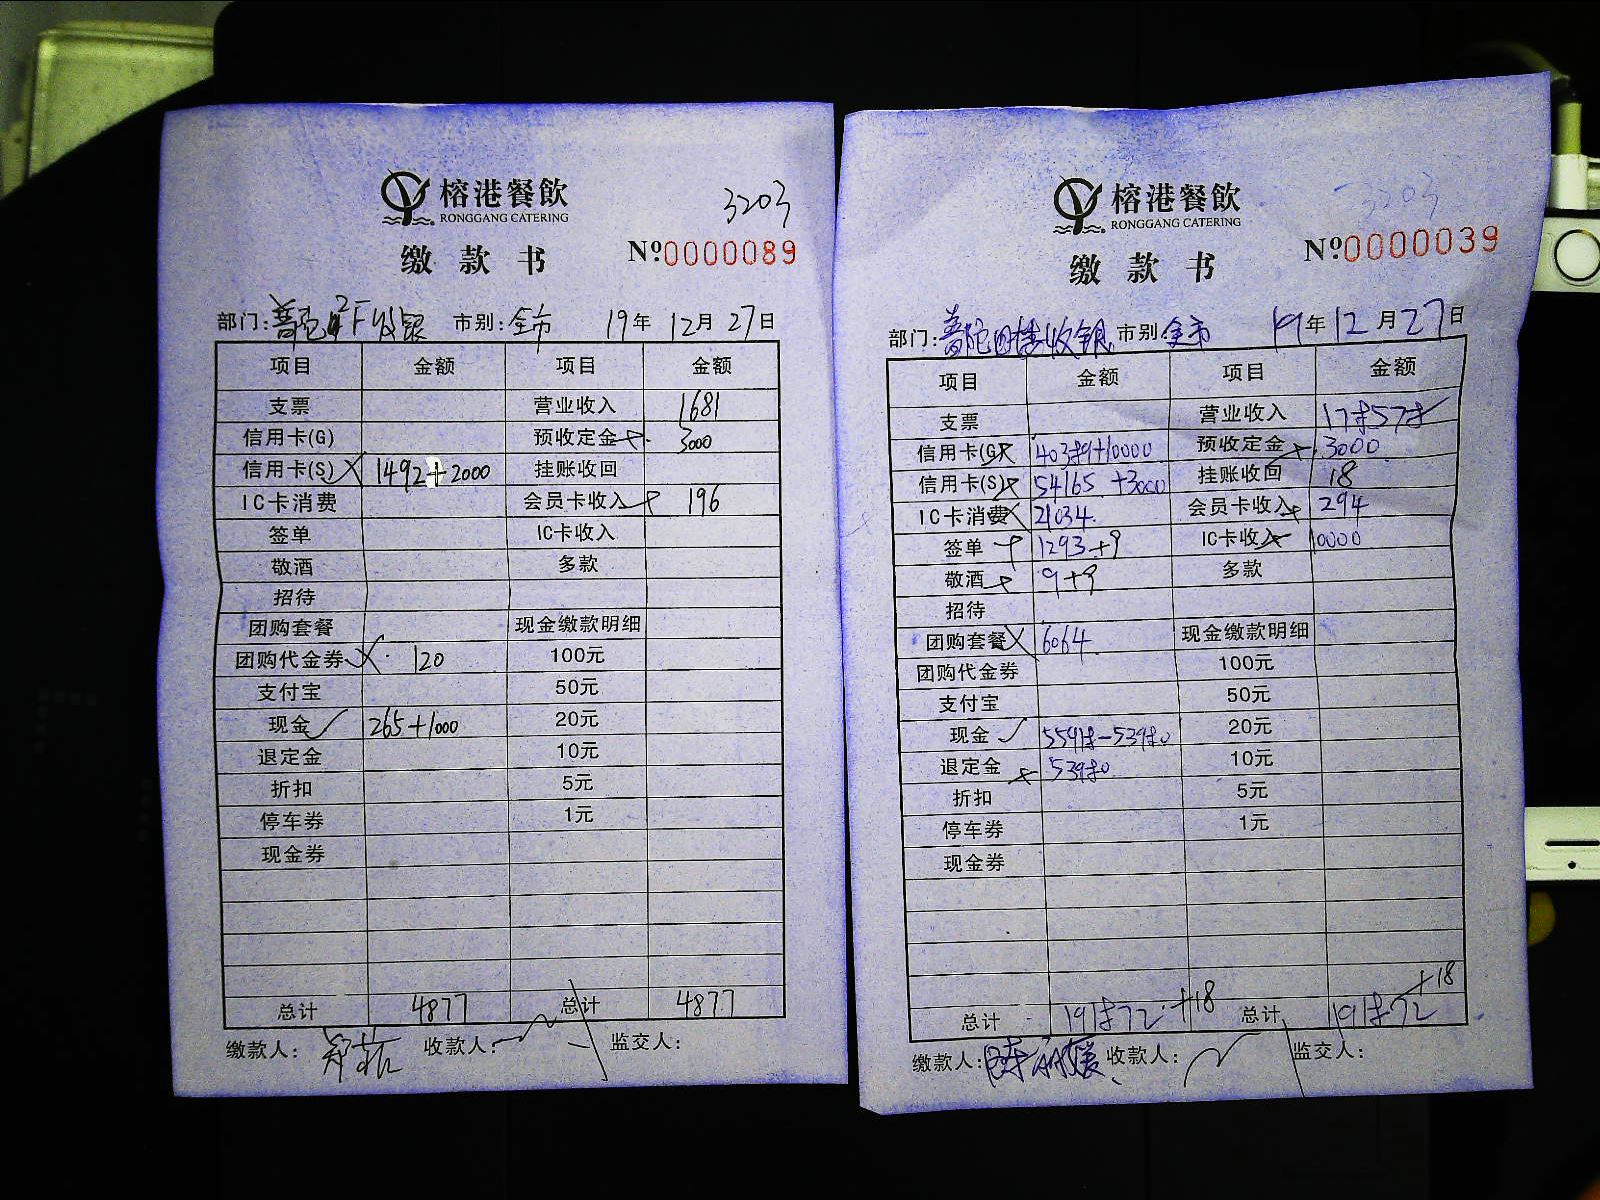 榕港餐飲
RONGGANG CATERING
3203
缴款书
Nº0000089
部门: 普陀2F收银 市别: 全市 19年 12月 27日
项目 金额 项目 金额
支票 营业收入 1681
信用卡(G) 预收定金 3000
信用卡(S) 1492+2000 挂账收回
IC卡消费 会员卡收入 196
签单 IC卡收入
敬酒 多款
招待
团购套餐 现金缴款明细
团购代金券 120 100元
支付宝 50元
现金 265+1000 20元
退定金 10元
折扣 5元
停车券 1元
现金券
总计 4877 总计 4877
缴款人: 收款人: 监交人:
榕港餐飲
RONGGANG CATERING
3203
缴款书
Nº0000039
部门: 普陀四楼收银 市别: 全市 19年 12月 27日
项目 金额 项目 金额
支票 营业收入
信用卡(G) 预收定金 3000
信用卡(S) 54165 +3000 挂账收回 18
IC卡消费 21034 会员卡收入 294
签单 1293+9 IC卡收入 10000
敬酒 9+9 多款
招待
团购套餐 6064 现金缴款明细
团购代金券 100元
支付宝 50元
现金 20元
退定金 10元
折扣 5元
停车券 1元
现金券
总计 +18 总计 +18
缴款人: 收款人: 监交人: